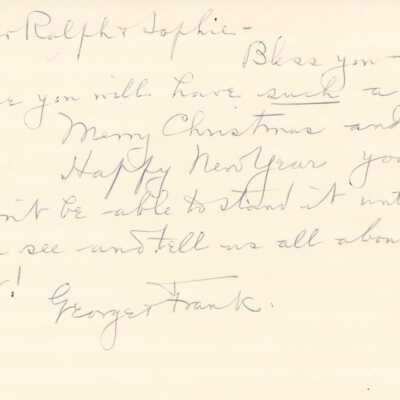 Ralph & Sophie-
Bless you-
you will have such a
Merry Christmas and
Happy New Year you
be able to stand it unt
see and tell us all abou
!
George & Frank.